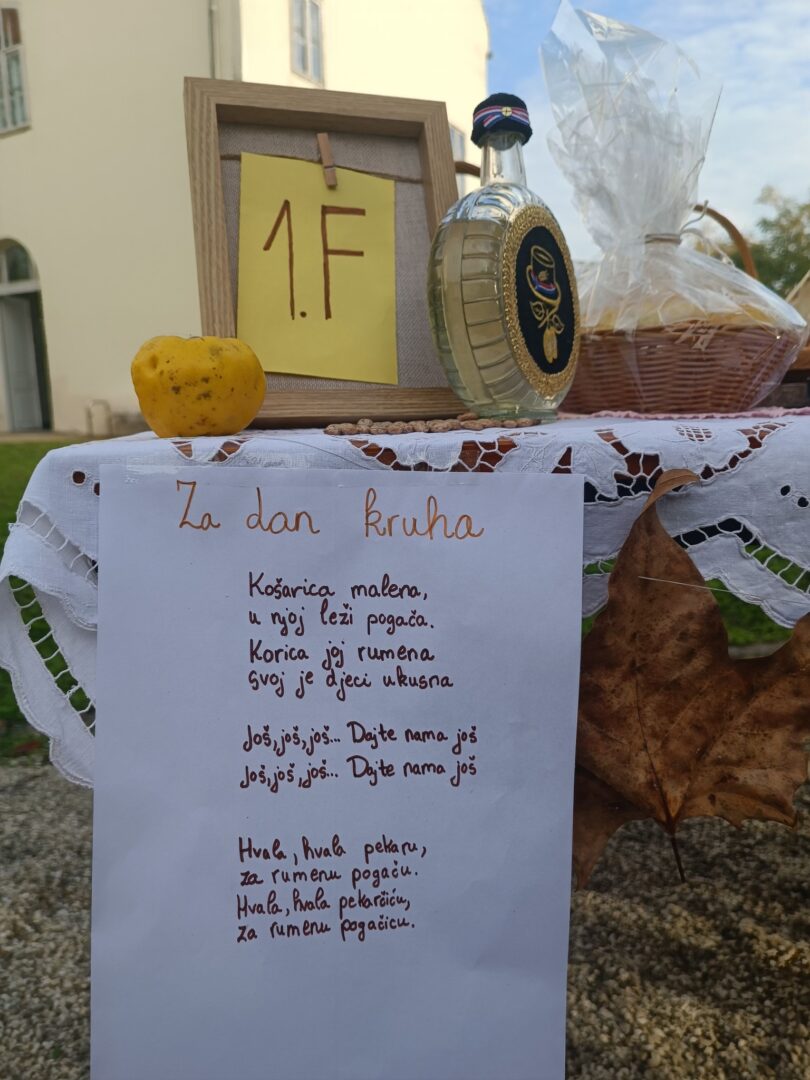 1.F
Za dan kruha
Košarica malena,
u njoj leži pogača.
Korica joj rumena
svoj je djeci ukusna
Još, još, još... Dajte nama još
Još, još, još... Dajte nama još
Hvala, hvala pekaru,
za rumenu pogaču.
Hvala, hvala pekarčiću,
za rumenu pogačicu.